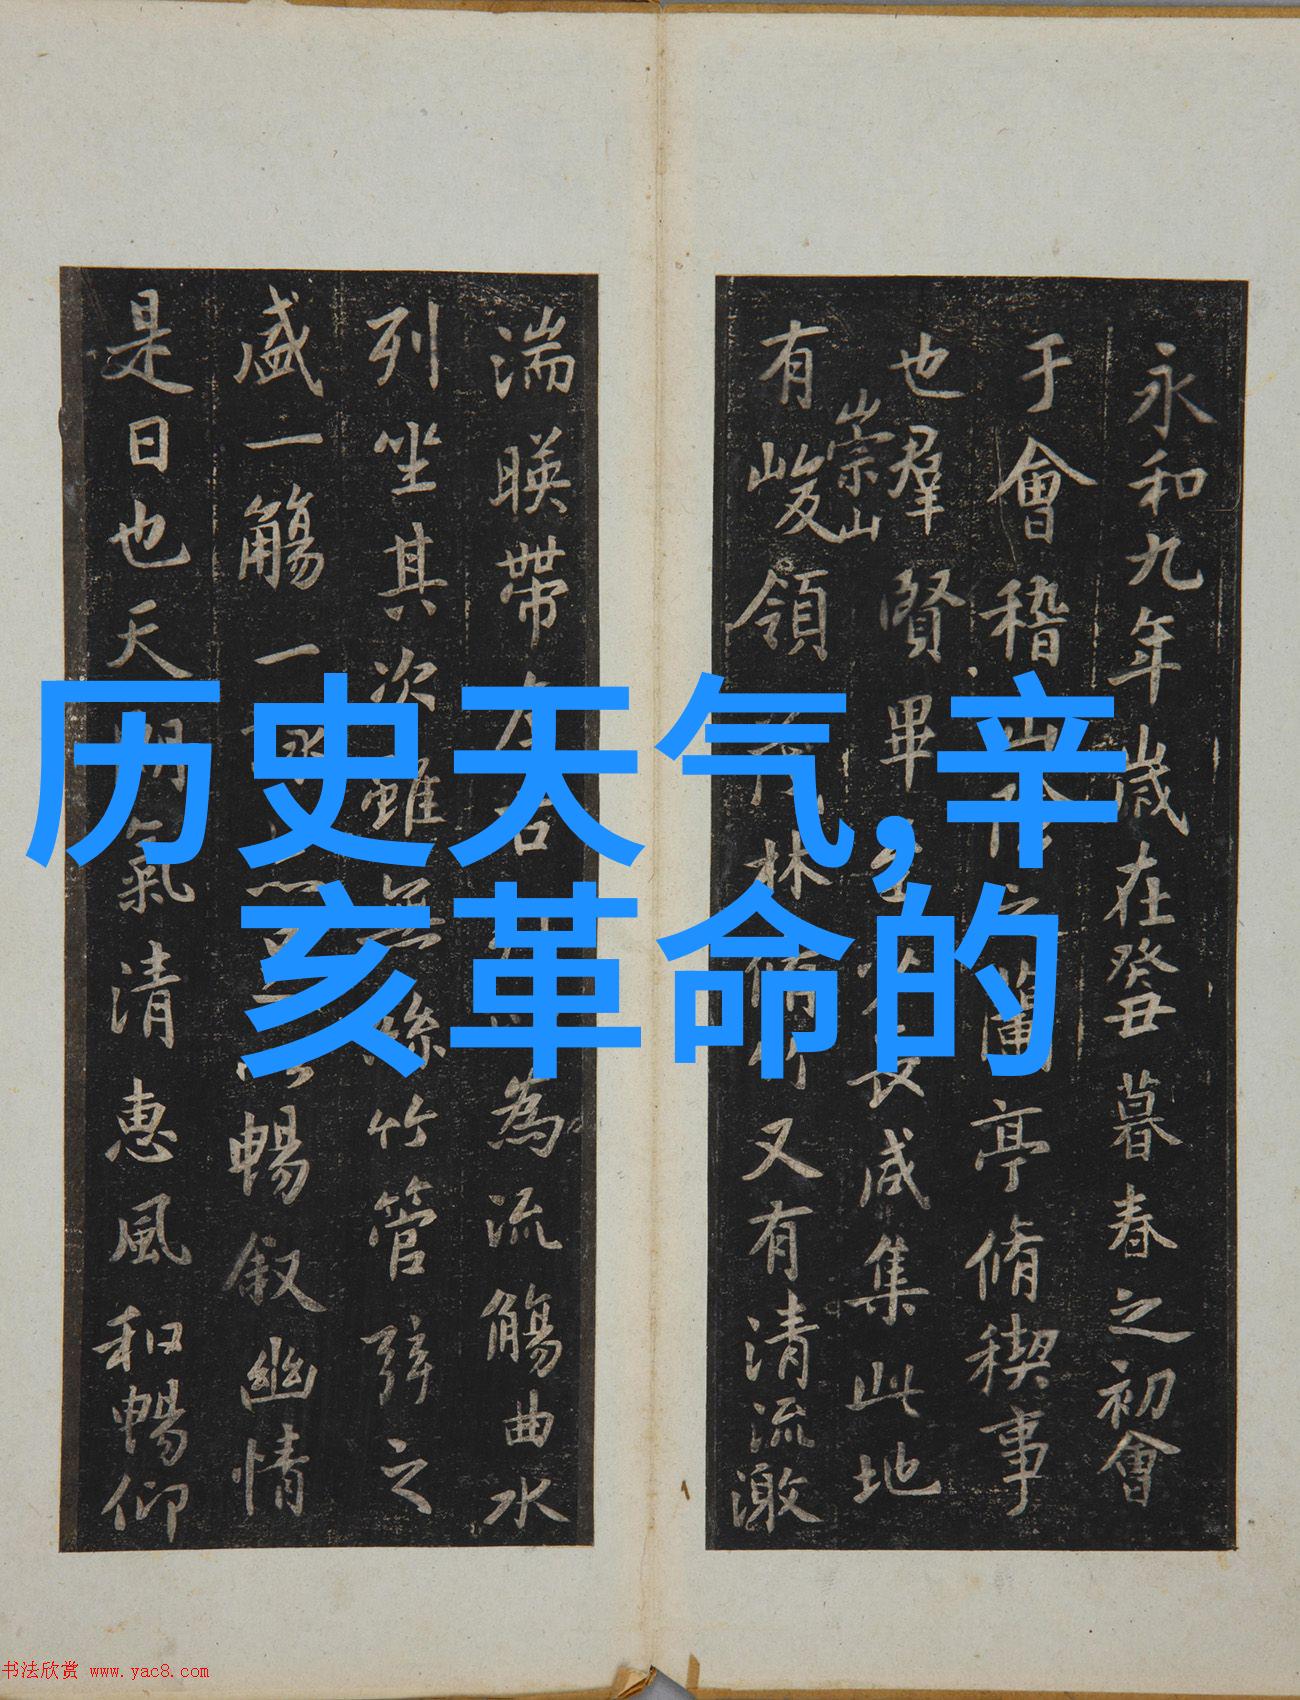 历史天气,辛
亥革命的
永和九年歲在癸丑暮春之初會
于會稽山陰之蘭亭脩稧事
也羣賢畢至少長咸集此地
崇山
有峻領茂林脩竹又有清流激
湍暎帶左右為流觴曲水
列坐其次雖無絲竹管弦之
盛一觴一詠暢叙幽情
是日也天朗氣清惠風和暢仰
书法欣赏 www.yac8.com